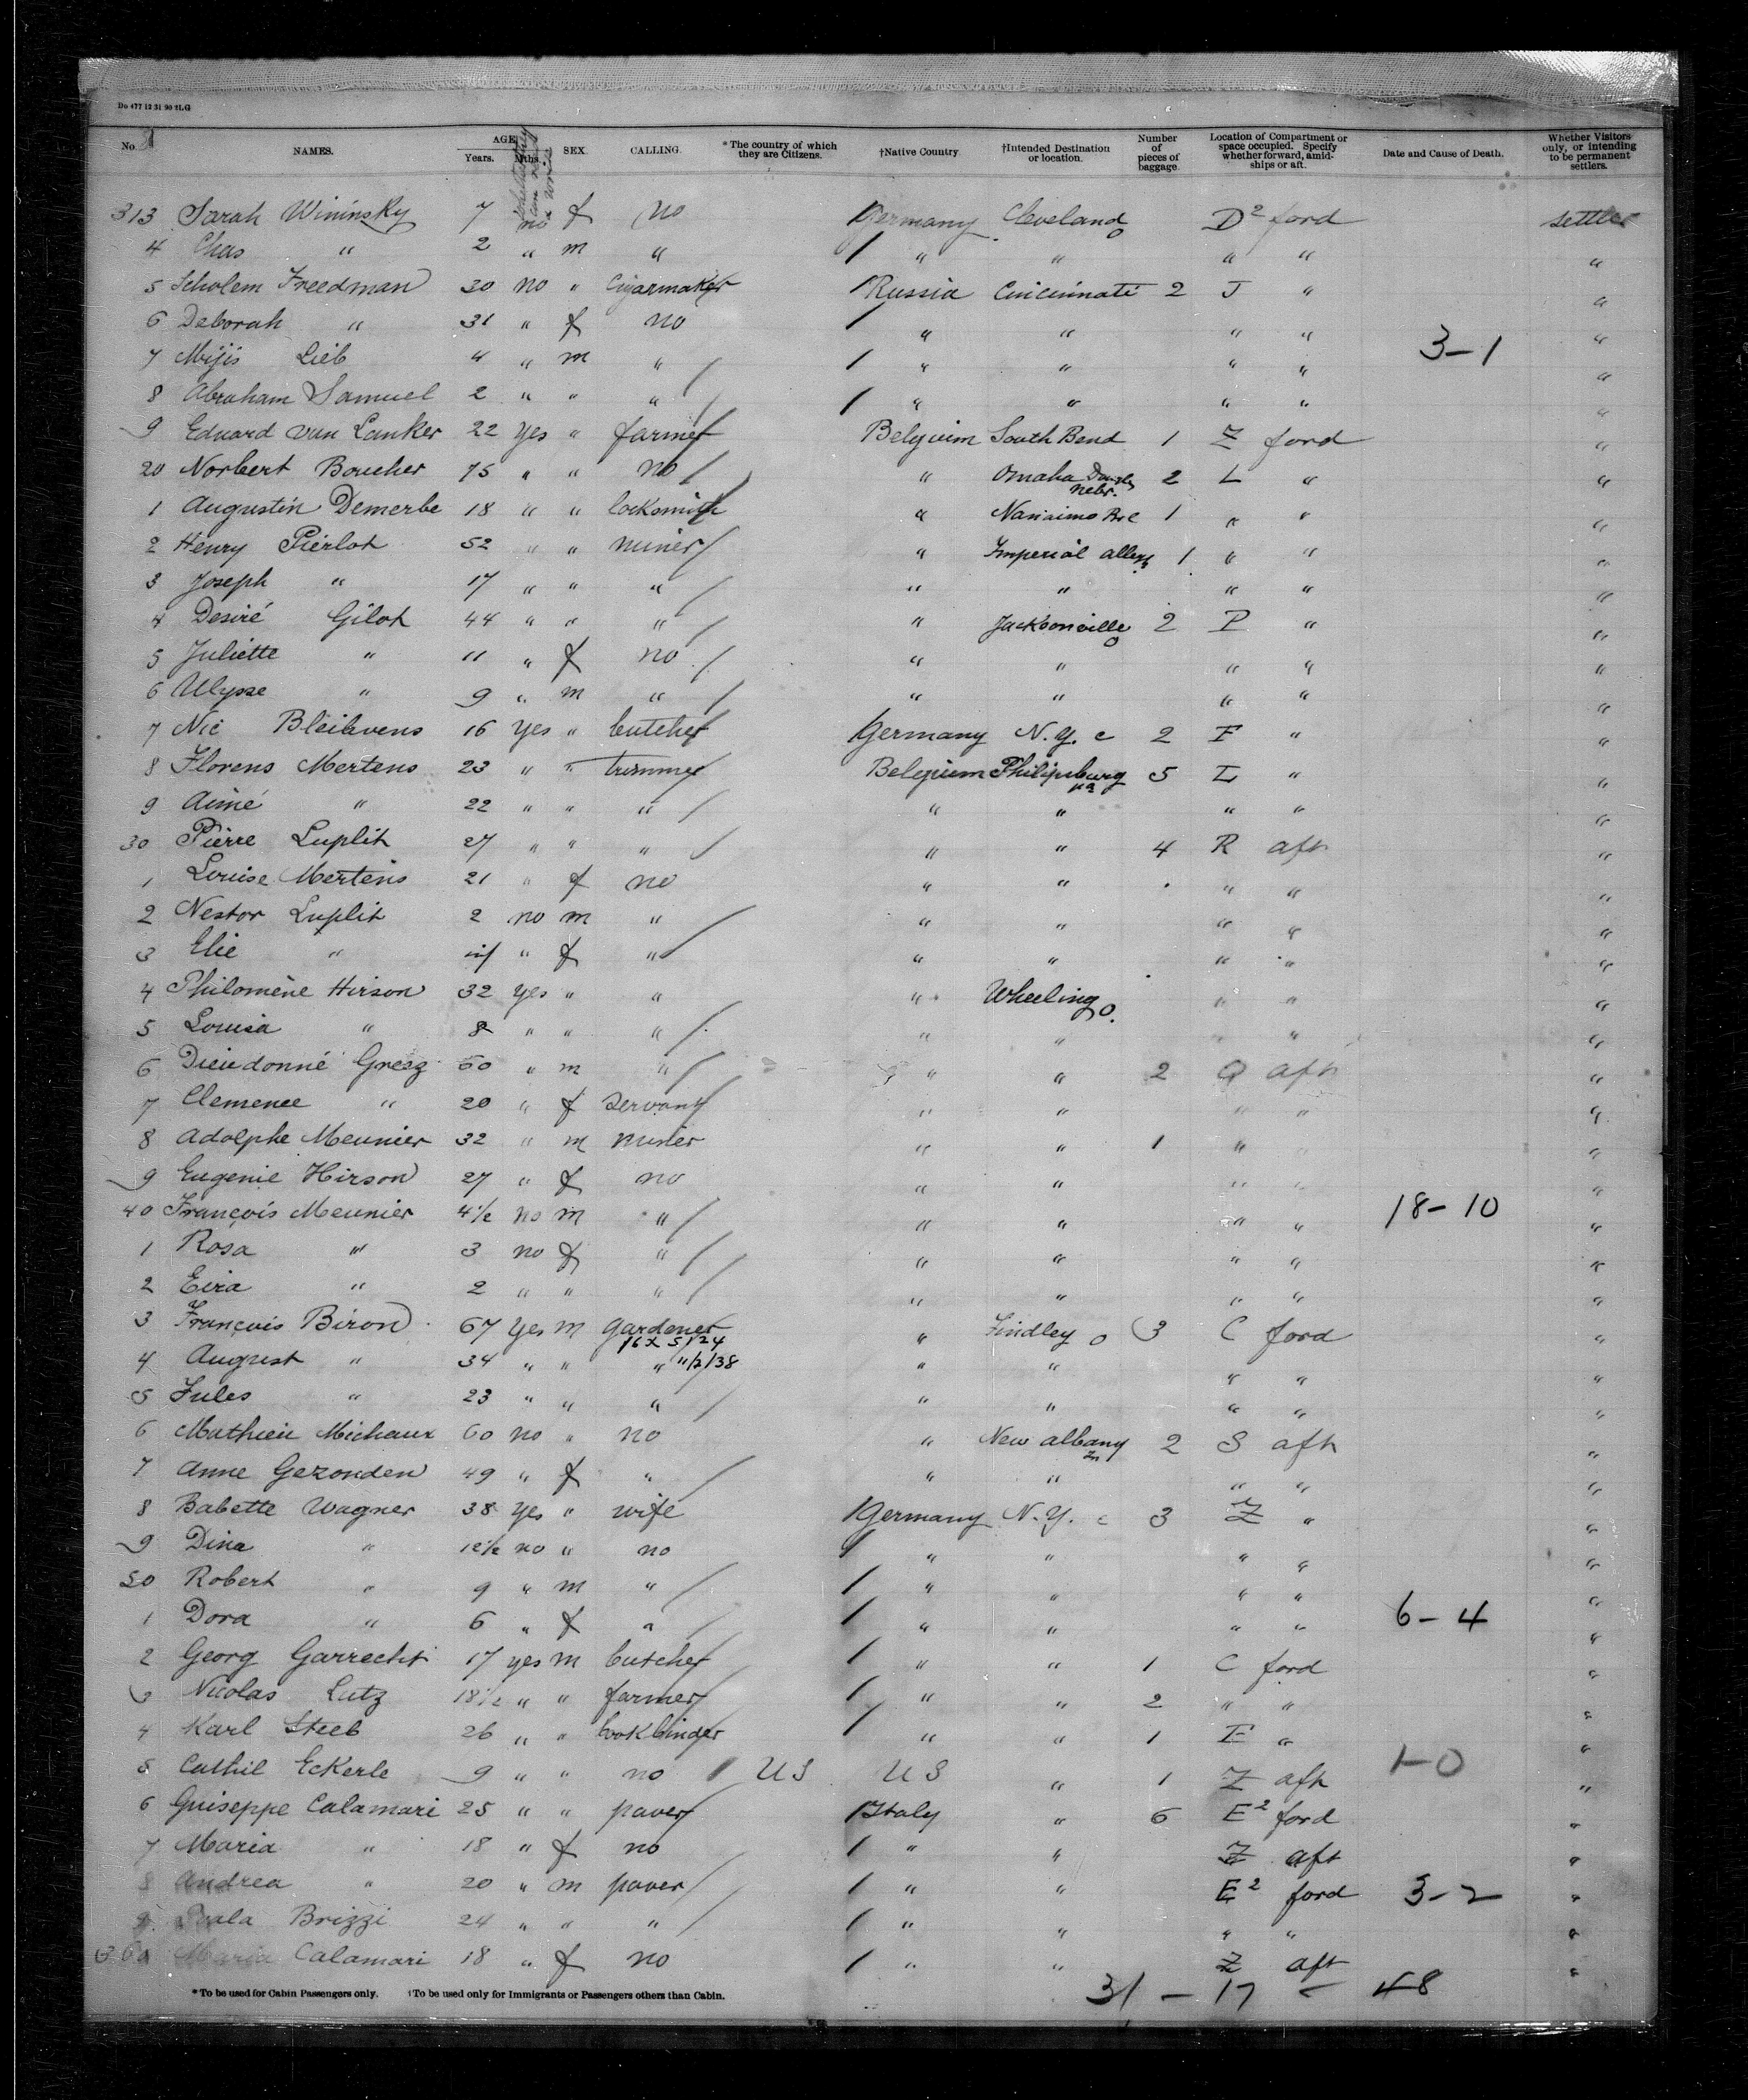 Do 477 12 31 90 2LG
No. NAMES. AGE Years. Mths. SEX. CALLING. *The country of which they are Citizens. †Native Country. †Intended Destination or location. Number of pieces of baggage. Location of Compartment or space occupied. Specify whether forward, amidships or aft. Date and Cause of Death. Whether Visitors only, or intending to be permanent settlers.
313 Sarah Wininsky 7 no f no Germany Cleveland O D2 ford settler
4 Chas " 2 " m " " " " " "
5 Scholem Freedman 30 no " Cigarmaker Russia Cincinnati 2 J " "
6 Deborah " 31 " f no " " " " "
3-1
7 Mijis Lieb 4 " m " " " " " "
8 Abraham Samuel 2 " " " " " " " "
9 Eduard van Lanker 22 yes " farmer Belgium South Bend 1 Z ford "
20 Norbert Boucher 75 " " no " Omaha Nebr. 2 L " "
1 Augustin Demerbe 18 " " locksmith " Nanaimo 1 " " "
2 Henry Pierlot 52 " " miner " Imperial 1 " " "
3 Joseph " 17 " " " " " " " "
4 Desiré Gilot 44 " " " " Jacksonville O 2 P " "
5 Juliette " 11 " f no " " " " "
6 Ulysse " 9 " m " " " " " "
7 Nic Bleibvens 16 yes " butcher Germany N.Y. c 2 F " "
8 Florens Mertens 23 " " trimmer Belgium Philipsburg pa 5 L " "
9 Aimé " 22 " " " " " " " "
30 Pierre Luplit 27 " " " " " 4 R aft "
1 Louise Mertens 21 " f no " " " " "
2 Nestor Luplit 2 no m " " " " " "
3 Elie " inf " f " " " " " "
4 Philomène Hirson 32 yes " " " Wheeling O. " " "
5 Louisa " 8 " " " " " " "
6 Dieudonné Gresz 50 " m " " " 2 Q aft "
7 Clemence " 20 " f servant " " " " "
8 Adolphe Meunier 32 " m miner " " 1 " " "
9 Eugenie Hirson 27 " f no " " " " "
18-10
40 François Meunier 4½ no m " " " " " "
1 Rosa " 3 no f " " " " " "
2 Eira " 2 " " " " " " " "
3 François Biron 67 yes m gardener " Findley O 3 C ford "
16X 5/24
4 August " 34 " " " "/2/38 " " " " "
5 Jules " 23 " " " " " " " "
6 Mathieu Michaux 60 no " no " New albany In 2 S aft "
7 Anne Gezonden 49 " f " " " " " "
8 Babette Wagner 38 yes " wife Germany N.Y. c 3 Z " "
9 Dina " 12½ no " no " " " " "
50 Robert " 9 " m " " " " " "
1 Dora " 6 " f " " " " " "
6-4
2 Georg Garrecht 17 yes m butcher " " 1 C ford "
3 Nicolas Lutz 18½ " " farmer " " 2 " " "
4 Karl Steeb 26 " " bookbinder " " 1 F " "
5 Cathil Eckerle 9 " " no US US " 1 Z aft 1-0 "
6 Guiseppe Calamari 25 " " paver Italy " 6 E2 ford "
7 Maria " 18 " f no " " Z aft "
8 Andrea " 20 " m paver " " E2 ford 3-2 "
9 Brizzi 24 " " " " " " " "
360 Maria Calamari 18 " f no " " Z aft "
31 - 17 - 48
*To be used for Cabin Passengers only. †To be used only for Immigrants or Passengers others than Cabin.